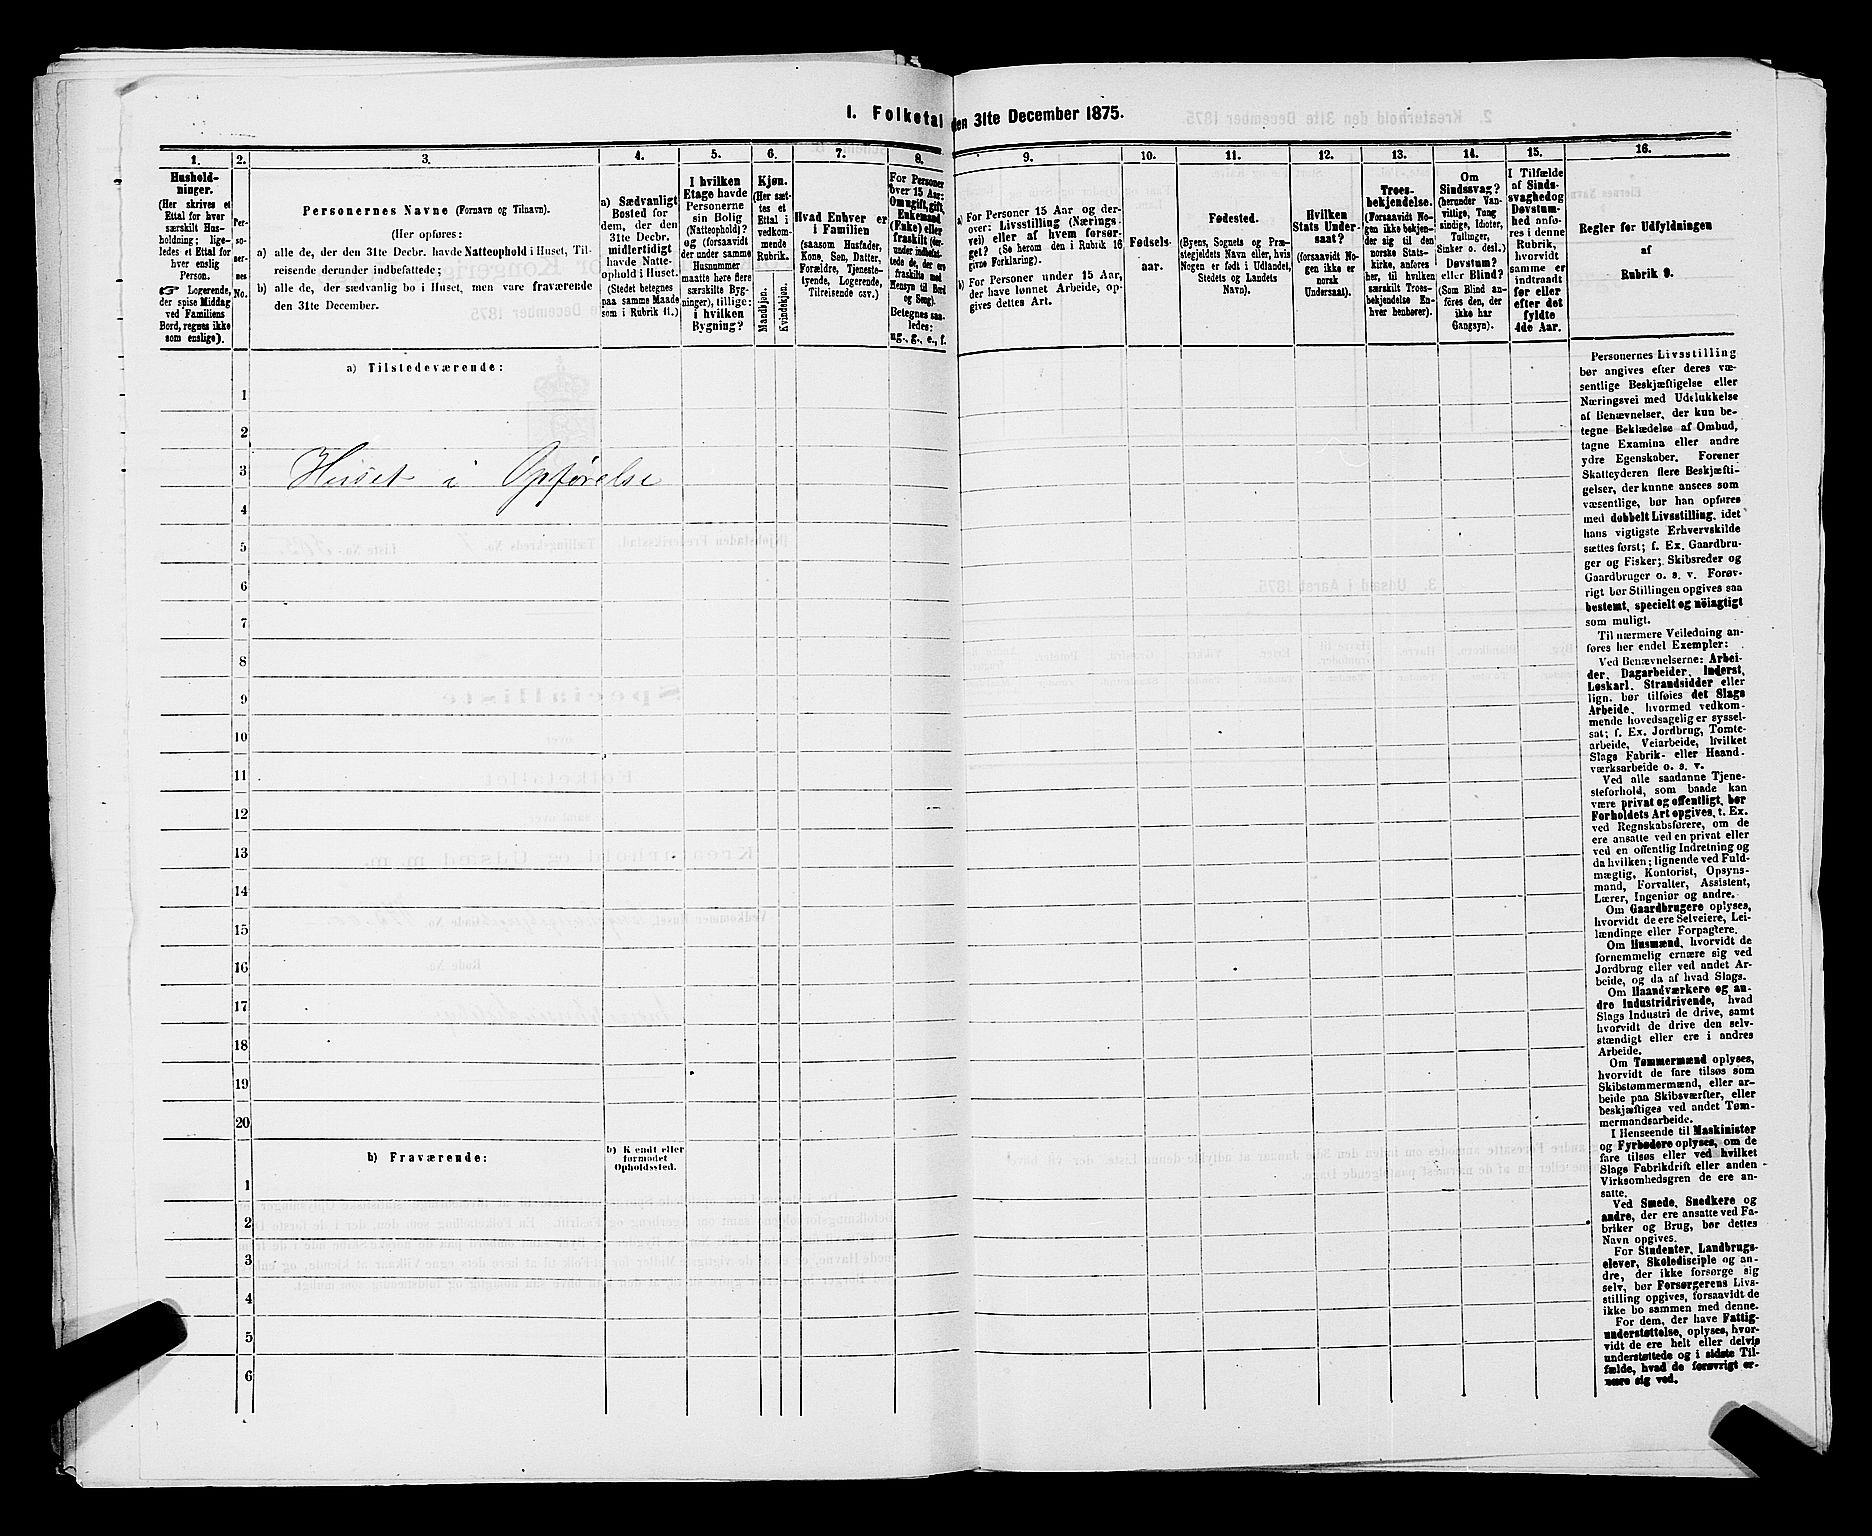 1. Folketal den 31te December 1875.
1. 2. 3. 4. 5. 6. 7. 8. 9. 10. 11. 12. 13. 14. 15. 16.
Hushold-
ninger.
(Her skrives et
Ettal for hver
særskilt Hus-
holdning; lige-
ledes et Ettal for
hver enslig
Person.
☞ Logerende,
der spise Middag
ved Familiens
Bord, regnes ikke
som enslige).
Per-
so-
ner-
nes
No.
Personernes Navne (Fornavn og Tilnavn).
(Her opføres:
a) alle de, der den 31te Decbr. havde Natteophold i Huset, Til-
reisende derunder indbefattede;
b) alle de, der sædvanlig bo i Huset, men vare fraværende
den 31te December.
a) Sædvanligt
Bosted for
dem, der den
31te Decbr.
midlertidigt
havde Natte-
ophold i Huset.
(Stedet betegnes
paa samme Maade
som i Rubrik 11.)
I hvilken
Etage havde
Personerne
sin Bolig
(Natteophold)?
og (forsaavidt
der under samme
Husnummer
maatte høre flere
særskilte Byg-
ninger), tillige:
i hvilken
Bygning?
Kjøn.
(Her sæt-
tes et
Ettal i
vedkom-
mende
Rubrik.
Mandkjøn.
Kvindekjøn.
Hvad Enhver er
i Familien
(saasom Husfader,
Kone, Søn, Datter,
Forældre, Tjeneste-
tyende, Logerende,
Tilreisende osv.)
For Personer
over 15 Aar:
Om ugift, gift,
Enkemand
(Enke) eller
fraskilt (der-
under indbefat-
tede de, der ere
fraskilte med
Hensyn til Bord
og Seng).
Betegnes saa-
ledes:
ug., g., e., f.
a) For Personer 15 Aar og der-
over: Livsstilling (Nærings-
vei) eller af hvem forsør-
get? (Se herom den i Rubrik 16
givne Forklaring).
b) For Personer under 15 Aar,
der have lønnet Arbeide, op-
gives dettes Art.
Fødsels-
aar.
Fødested.
(Byens, Sognets og Præ-
stegjeldets Navn eller, hvis
Nogen er født i Udlandet,
Stedets og Landets
Navn).
Hvilken
Stats Under-
saat?
(forsaavidt No-
gen ikke er
norsk
Undersaat).
Troes-
bekjendelse.
(Forsaavidt No-
gen ikke bekjen-
der sig til den
norske Stats-
kirke, anføres
her, til hvilken
særskilt Troes-
bekjendelse En-
hver henhører).
Om
Sindssvag?
(herunder Van-
vittige, Tung-
sindige, Idioter,
Tullinger,
Sinker o. desl.)
Døvstum?
eller Blind?
(Som Blind an-
føres den, der
ikke har
Gangsyn).
I Tilfælde
af Sinds-
svaghed og
Døvstum-
hed anfø-
res i denne
Rubrik,
hvorvidt
samme er
indtraadt
før eller
efter det
fyldte
4de Aar.
Regler for Udfyldningen
af
Rubrik 9.
a) Tilstedeværende:
1
2
3 Huset i Opførelse
4
5
6
7
8
9
10
11
12
13
14
15
16
17
18
19
20
b) Fraværende:
b) Kjendt eller
formodet
Opholdssted.
1
2
3
4
5
6
Personernes Livsstilling
bør angives efter deres væ-
sentlige Beskjæftigelse eller
Næringsvei med Udelukkelse
af Benævnelser, der kun be-
tegne Beklædelse af Ombud,
tagne Examina eller andre
ydre Egenskaber. Forener
Skatteyderen flere Beskjæfti-
gelser, der kunne ansees som
væsentlige, bør han opføres
med dobbelt Livsstilling, idet
hans vigtigste Erhvervskilde
sættes først; f. Ex. Gaardbru-
ger og Fisker; Skibsreder og
Gaardbruger o. s. v. Forøv-
rigt bør Stillingen opgives saa
bestemt, specielt og nöiagtigt
som muligt.
Til nærmere Veiledning an-
føres her endel Exempler:
Ved Benævnelserne: Arbei-
der, Dagarbeider, Inderst,
Løskarl, Strandsidder eller
lign. bør tilføies det Slags
Arbeide, hvormed vedkom-
mende hovedsagelig er syssel-
sat; f. Ex. Jordbrug, Tomte-
arbeide, Veiarbeide, hvilket
Slags Fabrik- eller Haand-
værksarbeide o. s. v.
Ved alle saadanne Tjene-
steforhold, som baade kan
være privat og offentligt, bør
Forholdets Art opgives, t. Ex.
ved Regnskabsførere, om de
ere ansatte ved en privat eller
ved en offentlig Indretning og
da hvilken; lignende ved Fuld-
mægtig, Kontorist, Opsyns-
mand, Forvalter, Assistent,
Lærer, Ingeniør og andre.
Om Gaardbrugere oplyses,
hvorvidt de ere Selveiere, Lei-
lændinge eller Forpagtere.
Om Husmænd, hvorvidt de
fornemmelig ernære sig ved
Jordbrug eller ved andet Ar-
beide, og da af hvad Slags.
Om Haandværkere og an-
dre Industridrivende, hvad
Slags Industri de drive, samt
hvorvidt de drive den selv-
stændigt eller ere i andres
Arbeide.
Om Tømmermænd oplyses,
hvorvidt de fare tilsøs som
Skibstømmermænd, eller ar-
beide paa Skibsværfter, eller
beskjæftiges ved andet Tøm-
mermandsarbeide.
I Henseende til Maskinister
og Fyrbødere oplyses, om de
fare tilsøs eller ved hvilket
Slags Fabrikdrift eller anden
Virksomhedsgren de ere an-
satte.
Ved Smede, Snedkere og
andre, der ere ansatte ved Fa-
briker og Brug, bør dettes
Navn opgives.
For Studenter, Landbrugs-
elever, Skoledisciple og an-
dre, der ikke forsørge sig
selv, bør Forsørgerens Livs-
stilling opgives, forsaavidt de
ikke bo sammen med denne.
For dem, der have Fattig-
understøttelse, oplyses, hvor-
vidt de ere helt eller delvis
understøttede og i sidste Til-
fælde, hvad de forøvrigt er-
nære sig ved.